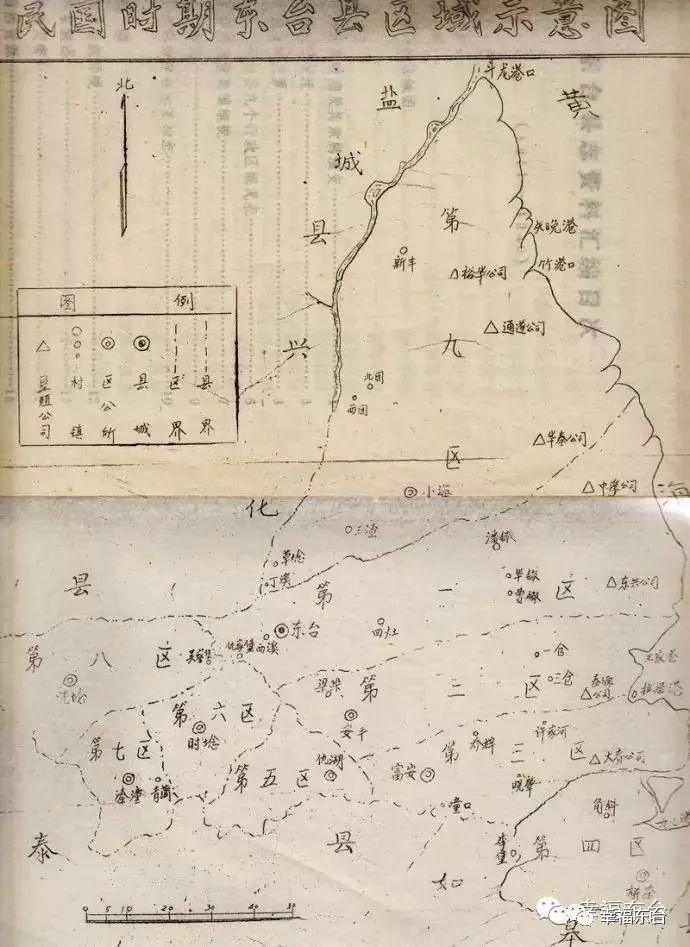 民国时期东台县区域示意图
北
斗龙港口
盐
城
县
黄
海
第九区
新丰
裕华公司
竹港口
通遂公司
图例
县界
区界
县城
区公所
村镇
垦殖公司
兴
化
县
北团
西团
华泰公司
小海
三渣
草埝
丁溪
第一区
东兴公司
东台
西溪
四灶
第八区
一仓
三仓
王家港
梁垛
第二区
泰源公司
第六区
时埝
安丰
许家河
第七区
第三区
大赉公司
溱潼
青蒲
第五区
仇湖
富安
角斜
李堡
第四区
泰
县
如
0 5 10 20 30 40 50
幸福东台
幸福东台